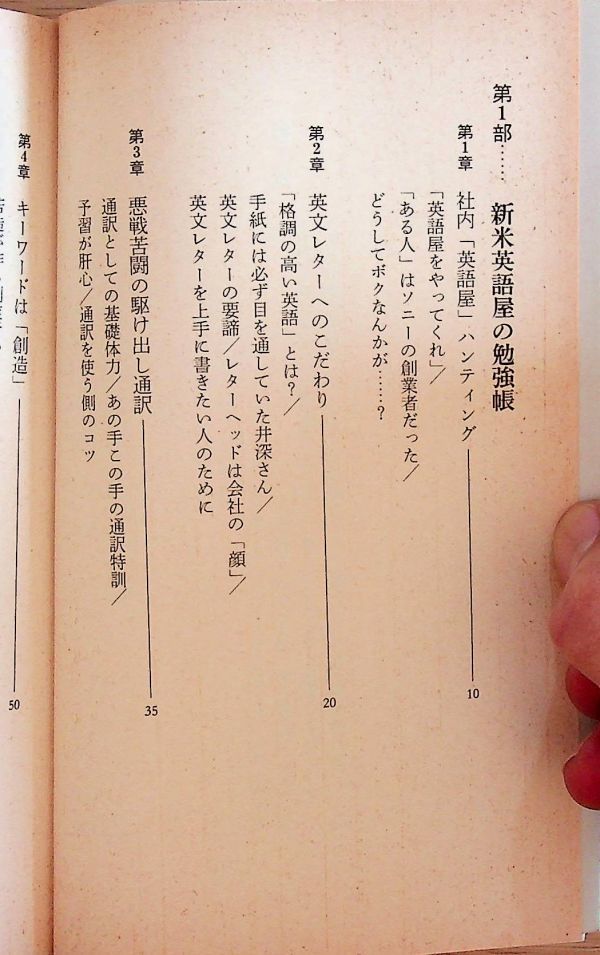 第1部……新米英語屋の勉強帳
第1章 社内「英語屋」ハンティング 10
「英語屋をやってくれ」／
「ある人」はソニーの創業者だった／
どうしてボクなんかが……？
第2章 英文レターへのこだわり 20
「格調の高い英語」とは？／
手紙には必ず目を通していた井深さん／
英文レターの要諦／レターヘッドは会社の「顔」／
英文レターを上手に書きたい人のために
第3章 悪戦苦闘の駆け出し通訳 35
通訳としての基礎体力／あの手この手の通訳特訓／
予習が肝心／通訳を使う側のコツ
第4章 キーワードは「創造」 50